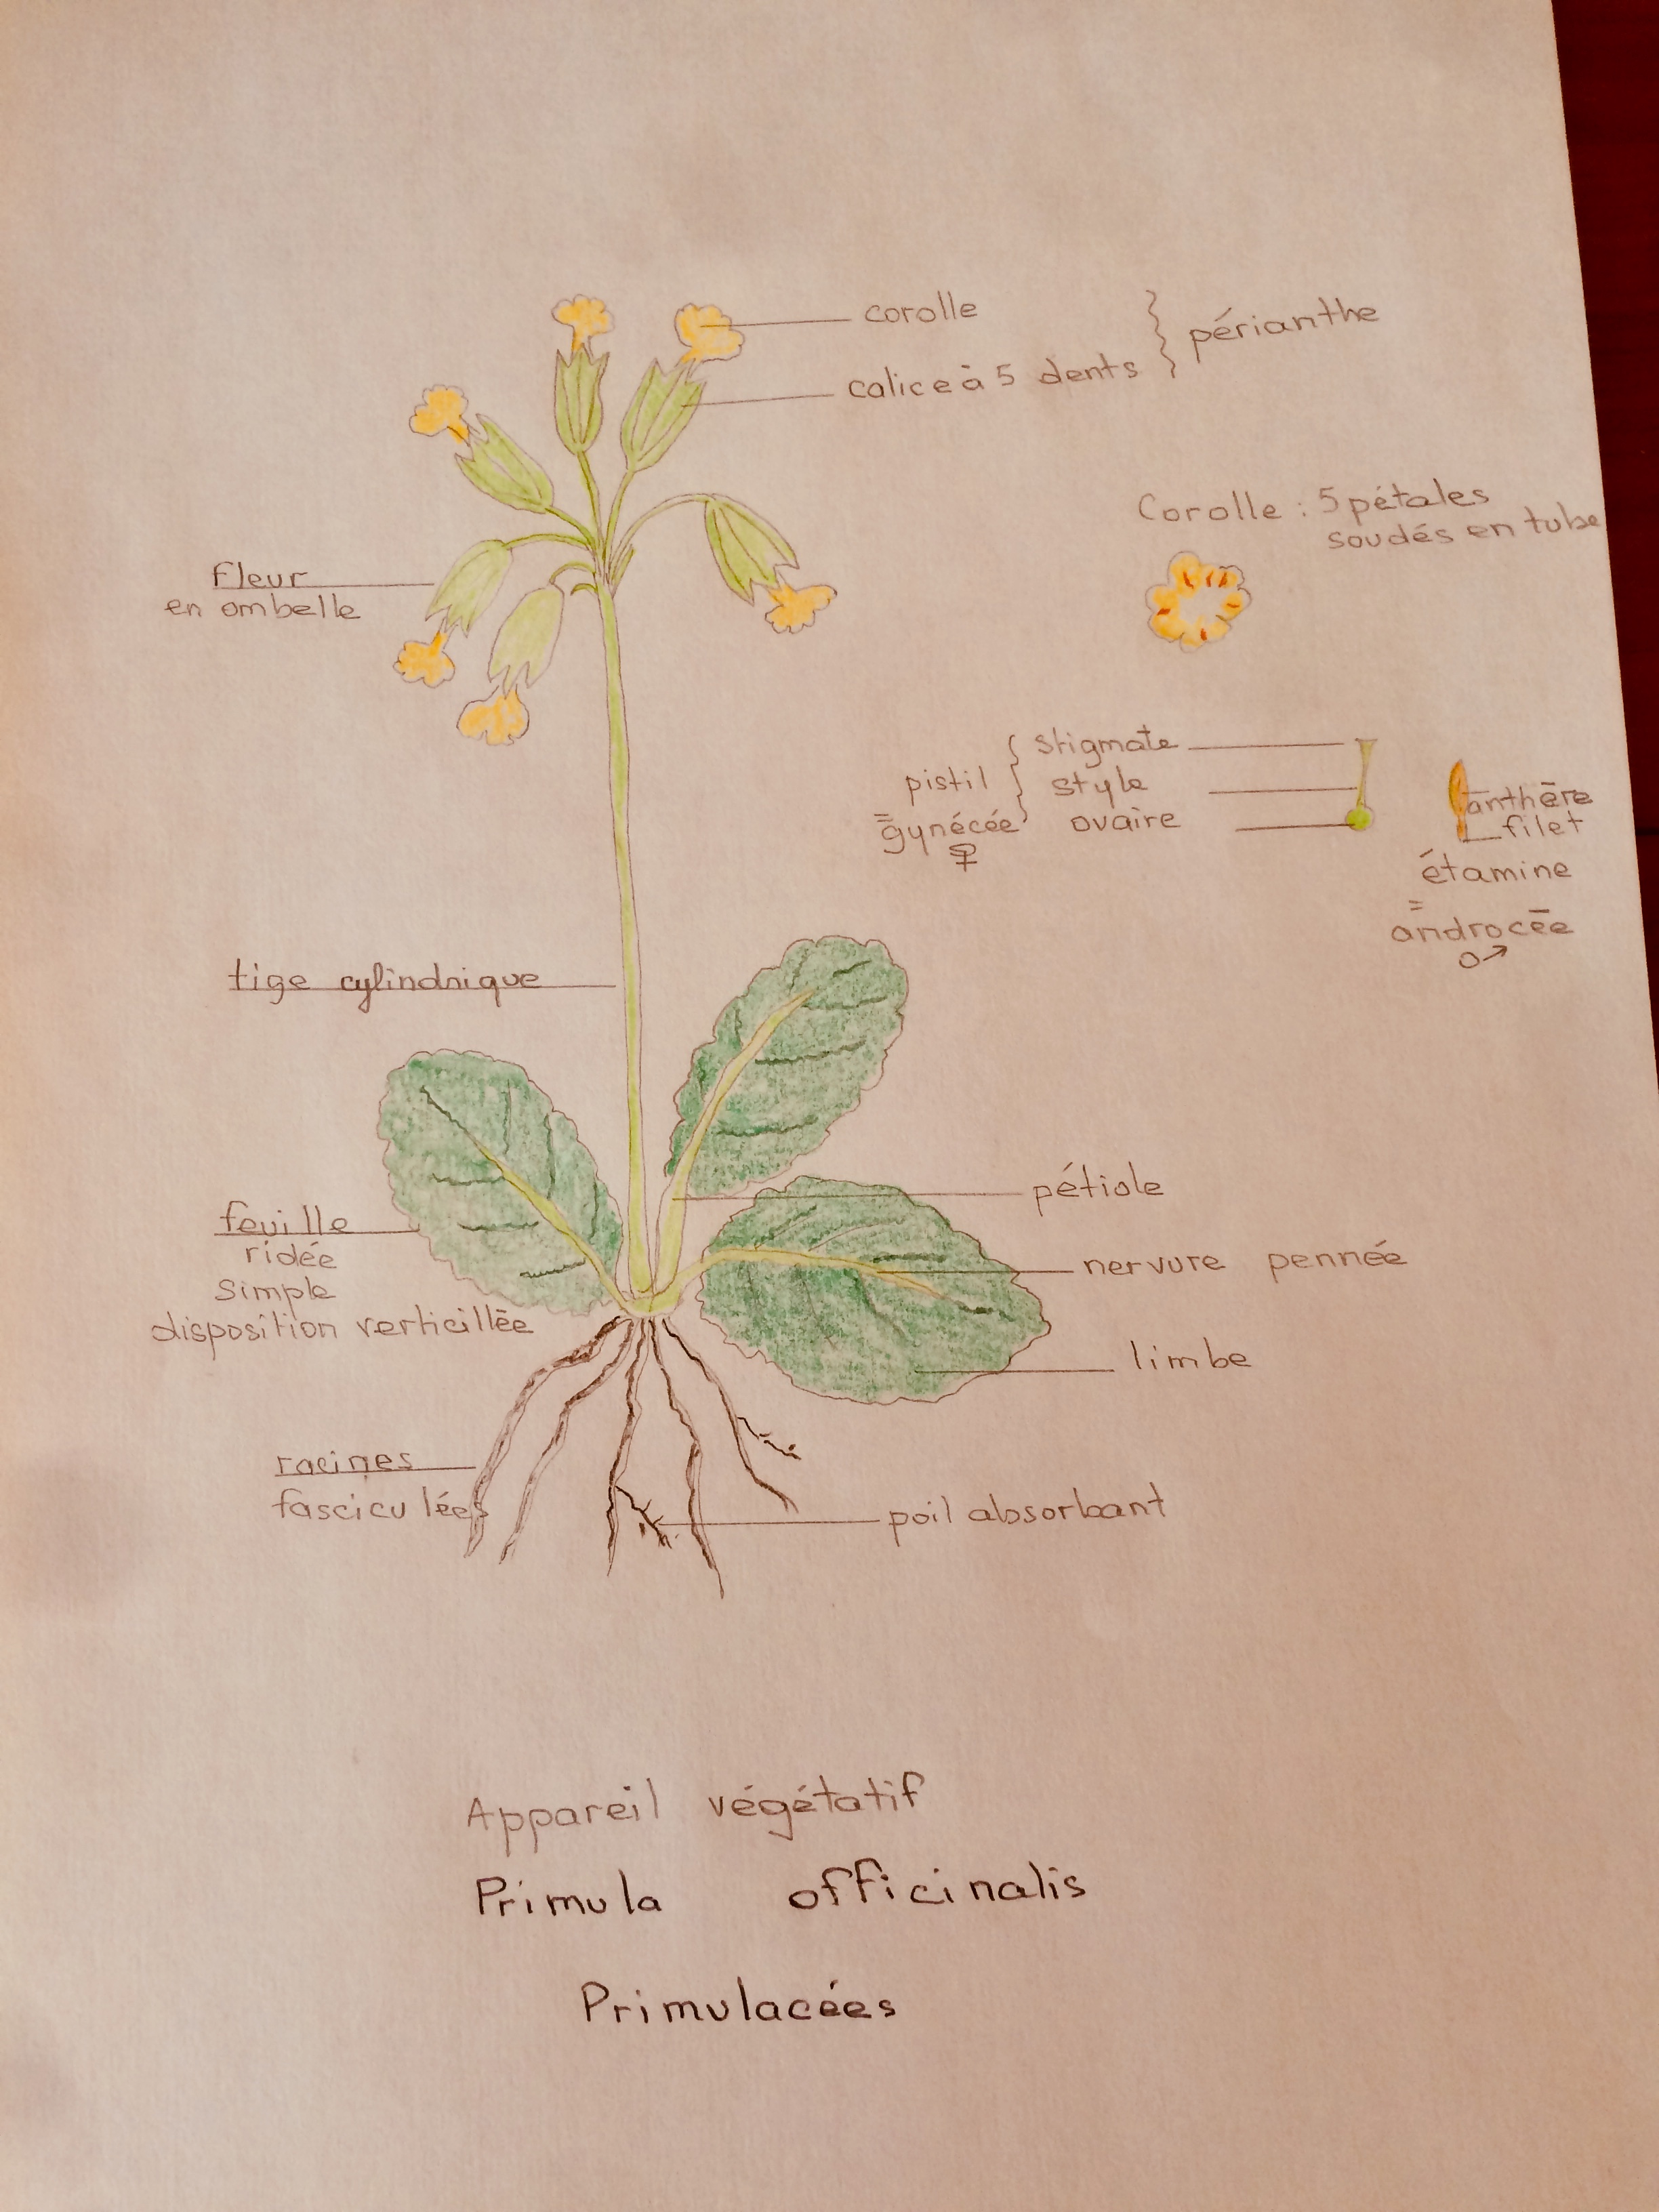 corolle
calice à 5 dents
périanthe
Corolle : 5 pétales
soudés en tube
fleur
en ombelle
stigmate
pistil
style
=
gynécée
ovaire
♀
anthère
filet
étamine
=
androcée
♂
tige cylindrique
pétiole
feuille
ridée
simple
disposition verticillée
nervure pennée
limbe
racines
fasciculées
poil absorbant
Appareil végétatif
Primula officinalis
Primulacées